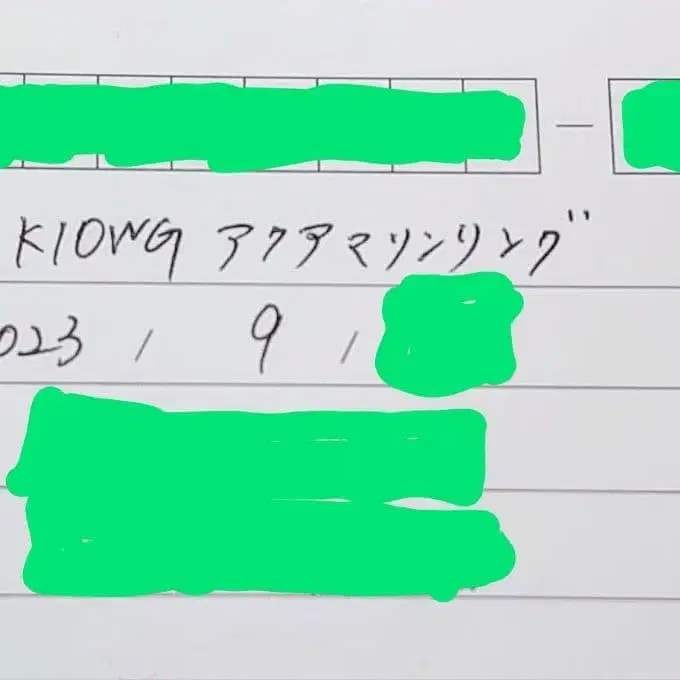 K10WG アクアマリンリング
2023 / 9 /